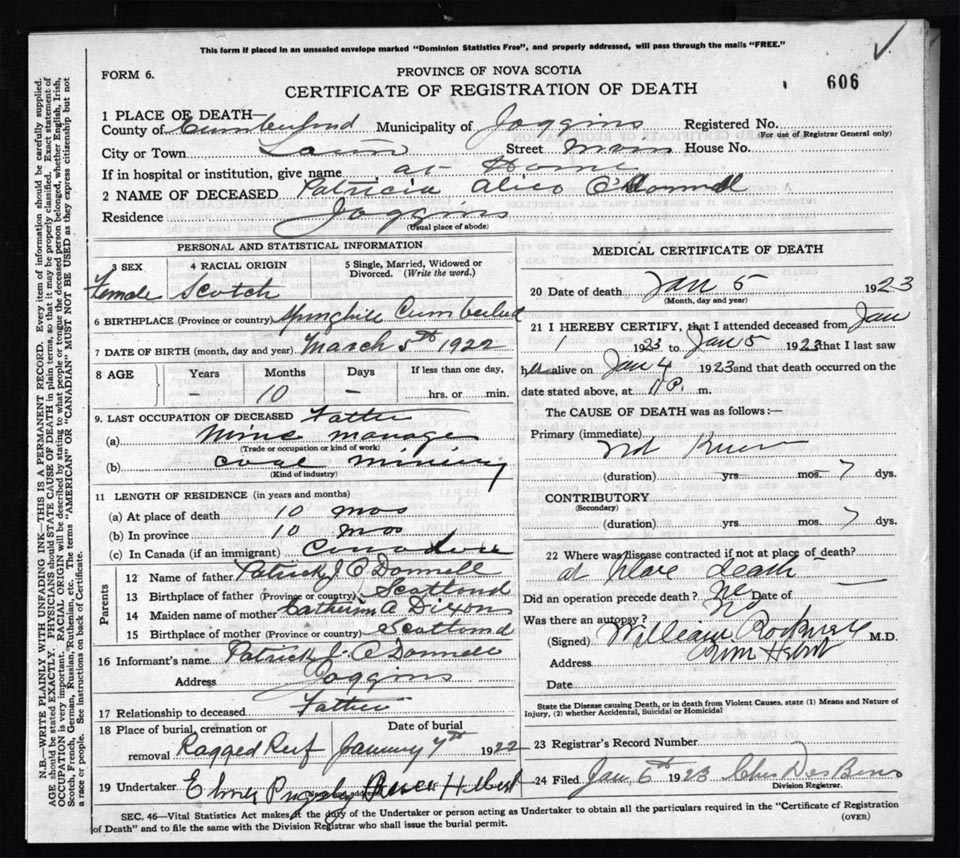 This form if placed in an unsealed envelope marked "Dominion Statistics Free", and properly addressed, will pass through the mails "FREE."
FORM 6.
PROVINCE OF NOVA SCOTIA
606
CERTIFICATE OF REGISTRATION OF DEATH
1 PLACE OF DEATH—
County of Cumberland Municipality of Joggins Registered No.
(For use of Registrar General only)
City or Town Street Main House No.
If in hospital or institution, give name at Home
2 NAME OF DECEASED Patricia Alice O'Donnell
Residence Joggins
(Usual place of abode)
PERSONAL AND STATISTICAL INFORMATION
3 SEX 4 RACIAL ORIGIN 5 Single, Married, Widowed or Divorced. (Write the word.)
Female Scotch
6 BIRTHPLACE (Province or country) Springhill Cumberland
7 DATE OF BIRTH (month, day and year) March 5th 1922
8 AGE Years Months Days If less than one day,
– 10 – hrs. or min.
9. LAST OCCUPATION OF DECEASED Father
(a) Mine manager
(Trade or occupation or kind of work)
(b) coal mining
(Kind of industry)
11 LENGTH OF RESIDENCE (in years and months)
(a) At place of death 10 mos
(b) In province 10 mos
(c) In Canada (if an immigrant)
Parents
12 Name of father Patrick J. O'Donnell
13 Birthplace of father (Province or country) Scotland
14 Maiden name of mother Catherine A Dixon
15 Birthplace of mother (Province or country) Scotland
16 Informant's name Patrick J. O'Donnell
Address Joggins
17 Relationship to deceased Father
18 Place of burial, cremation or removal Date of burial
Ragged Reef January 7th 1922
19 Undertaker Elmer Pugsly
MEDICAL CERTIFICATE OF DEATH
20 Date of death Jan 5 1923
(Month, day and year)
21 I HEREBY CERTIFY, that I attended deceased from Jan
1 1923 to Jan 5 1923 that I last saw
h alive on Jan 4 1923 and that death occurred on the
date stated above, at 11 P. m.
The CAUSE OF DEATH was as follows:—
Primary (immediate)
(duration) yrs. mos. 7 dys.
CONTRIBUTORY
(Secondary)
(duration) yrs. mos. 7 dys.
22 Where was disease contracted if not at place of death?
at place death
Did an operation precede death? No Date of
Was there an autopsy? No
(Signed) William Rockwell M.D.
Address
Date
State the Disease causing Death, or in death from Violent Causes, state (1) Means and Nature of
Injury, (2) whether Accidental, Suicidal or Homicidal
23 Registrar's Record Number
24 Filed Jan 6th 1923
Division Registrar.
SEC. 46—Vital Statistics Act makes it the duty of the Undertaker or person acting as Undertaker to obtain all the particulars required in the "Certificate of Registration
of Death" and to file the same with the Division Registrar who shall issue the burial permit.
(OVER)
N.B.—WRITE PLAINLY WITH UNFADING INK—THIS IS A PERMANENT RECORD. Every item of information should be carefully supplied.
AGE should be stated EXACTLY. PHYSICIANS should STATE CAUSE OF DEATH in plain terms, so that it may be properly classified. Exact statement of
OCCUPATION is very important. RACIAL ORIGIN will be described by stating to what people or tongue the deceased person belonged, whether English, Irish,
Scotch, French, German, Russian, Ruthenian, etc. The terms "AMERICAN" OR "CANADIAN" MUST NOT BE USED as they express citizenship but not
a race or people. See instructions on back of Certificate.